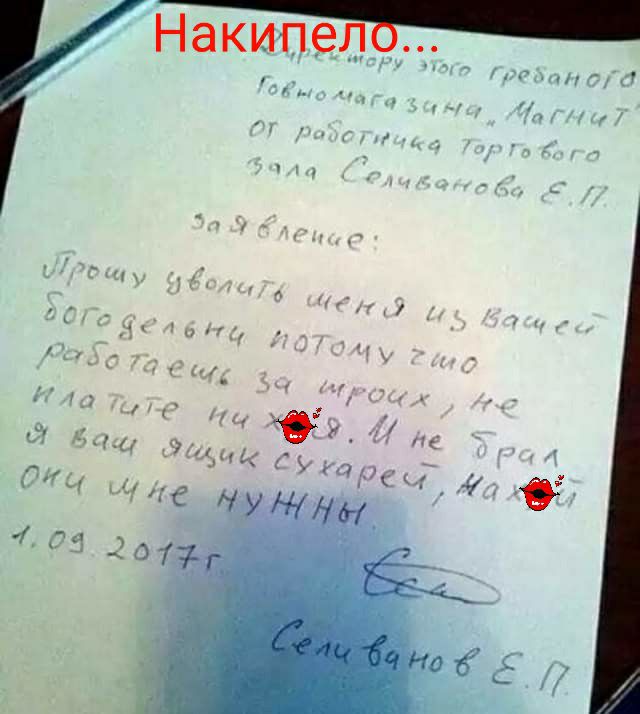 Накипело...
Директору этого гребаного
Говномагазина „Магнит
от работника торгового
зала Селиванова Е.П.
заявление:
Прошу уволить меня из вашей
богодельни потому что
работаешь за троих, не
платите ни х💋я. И не брал
я ваш ящик сухарей, нах💋й
они мне нужны.
1.09.2017г
Селиванов Е.П.